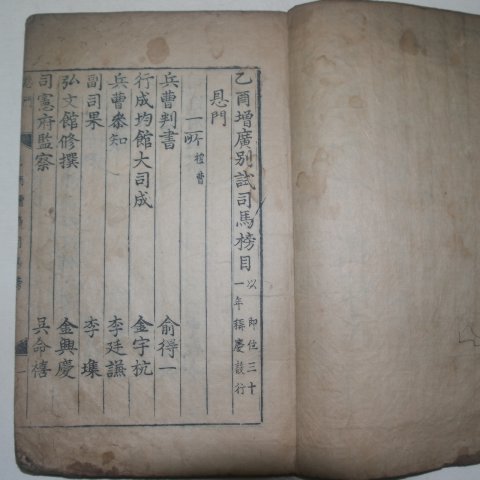 乙酉增廣別試司馬榜目 以即位三十一年稱慶設行
恩門
一所 禮曹
兵曹判書 兪得一
行成均館大司成 金宇杭
兵曹參知 李廷謙
副司果 李㙫
弘文館修撰 金興慶
司憲府監察 吳命禧